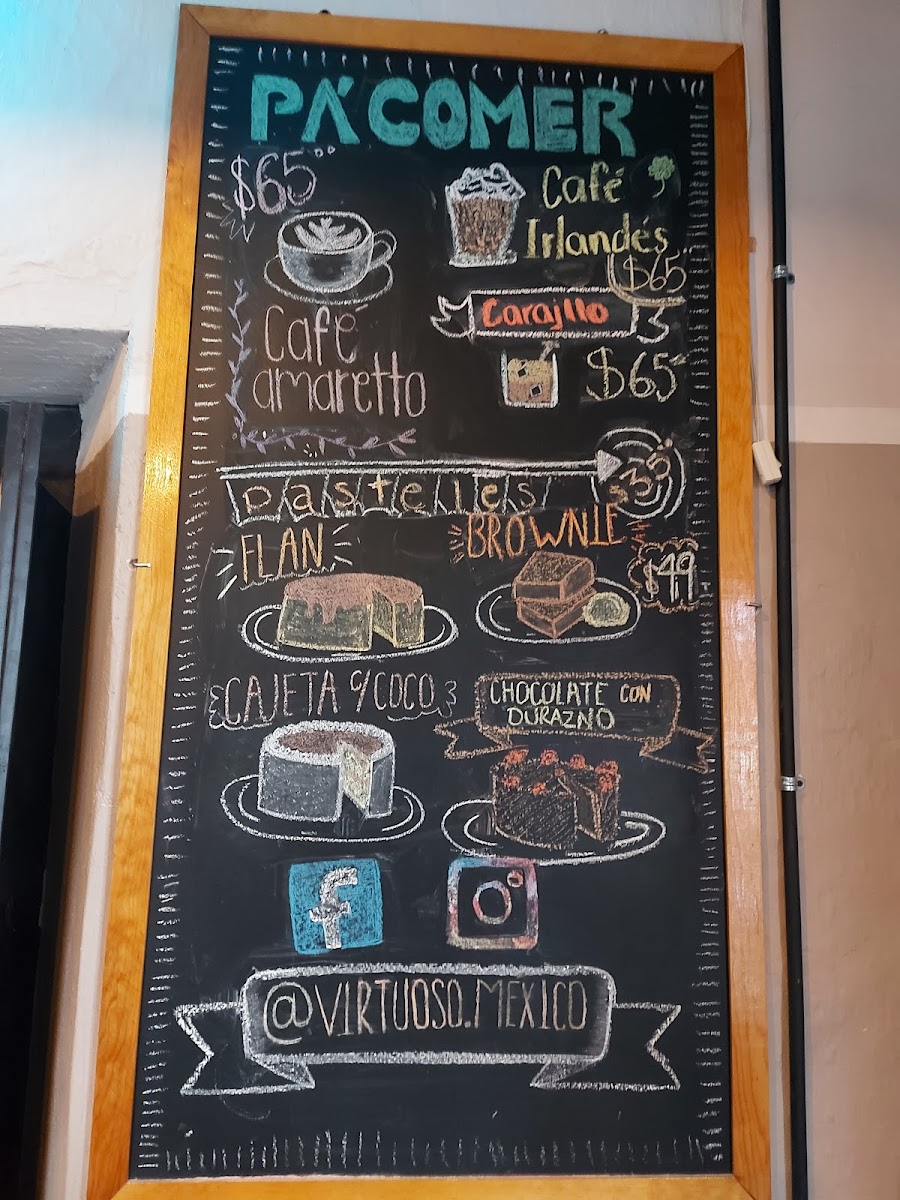 PA'COMER
$65°°
Café
amaretto
Café
Irlandés
$65
Carajllo
$65
pasteles
$35
FLAN
BROWNIE
$49
CAJETA C/COCO
CHOCOLATE CON
DURAZNO
f
@VIRTUOSO.MEXICO